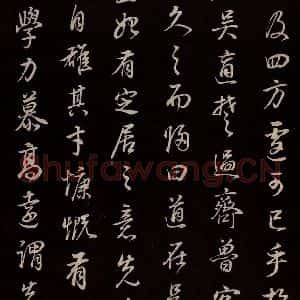 及四方可已乎
吳適楚過齊魯
久之而歸曰道在是
始有定居之意先
自雄其才慷慨有
學力慕高遠謂先
Shufawang.CN